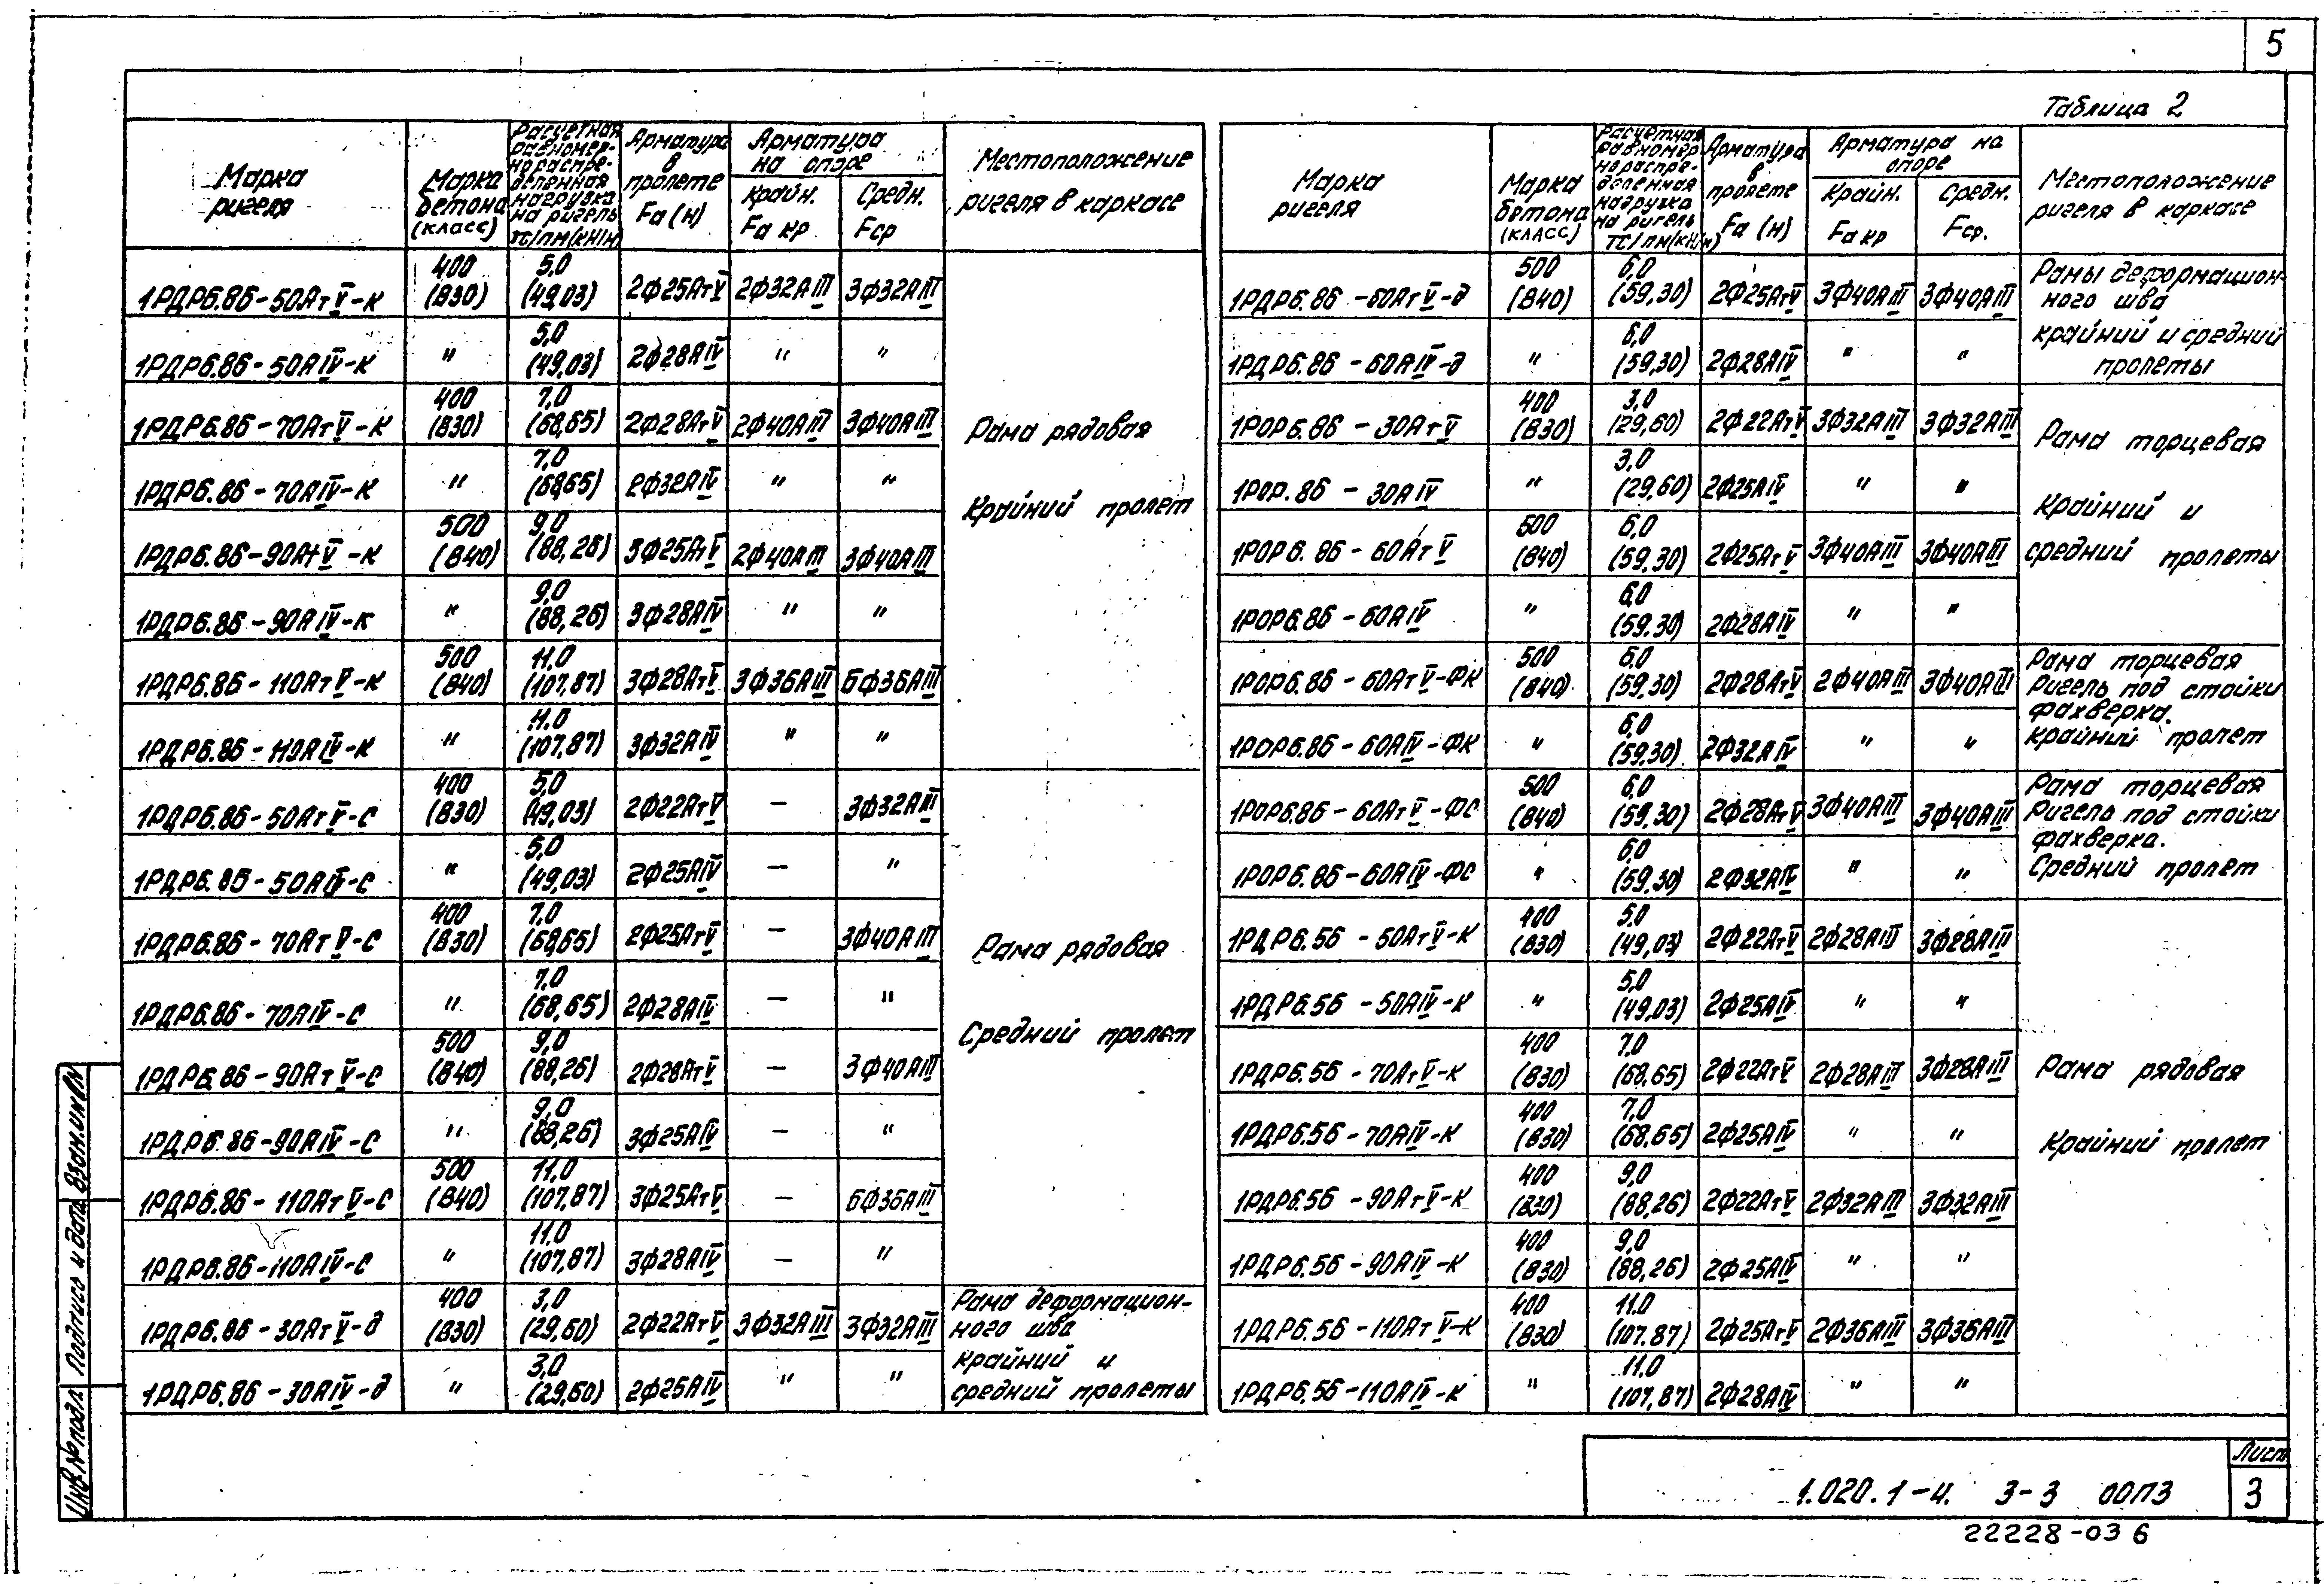 5
Таблица 2
Марка ригеля | Марка бетона (класс) | Расчетная равномерно распределенная нагрузка на ригель тс/пм(кН/м) | Арматура в пролете Fa (н) | Арматура на опоре Крайн. Fa кр | Средн. Fср | Местоположение ригеля в каркасе
1РДР6.86-50АтV-К | 400 (В30) | 5,0 (49,03) | 2Ф25АтV | 2Ф32АIII | 3Ф32АIII | Рама рядовая Крайний пролет
1РДР6.86-50АIV-К | " | 5,0 (49,03) | 2Ф28АIV | " | "
1РДР6.86-70АтV-К | 400 (В30) | 7,0 (68,65) | 2Ф28АтV | 2Ф40АIII | 3Ф40АIII
1РДР6.86-70АIV-К | " | 7,0 (68,65) | 2Ф32АIV | " | "
1РДР6.86-90АтV-К | 500 (В40) | 9,0 (88,26) | 3Ф25АтV | 2Ф40АIII | 3Ф40АIII
1РДР6.86-90АIV-К | " | 9,0 (88,26) | 3Ф28АIV | " | "
1РДР6.86-110АтV-К | 500 (В40) | 11,0 (107,87) | 3Ф28АтV | 3Ф36АIII | 6Ф36АIII
1РДР6.86-110АIV-К | " | 11,0 (107,87) | 3Ф32АIV | " | "
1РДР6.86-50АтV-С | 400 (В30) | 5,0 (49,03) | 2Ф22АтV | — | 3Ф32АIII | Рама рядовая Средний пролет
1РДР6.86-50АIV-С | " | 5,0 (49,03) | 2Ф25АIV | — | "
1РДР6.86-70АтV-С | 400 (В30) | 7,0 (68,65) | 2Ф25АтV | — | 3Ф40АIII
1РДР6.86-70АIV-С | " | 7,0 (68,65) | 2Ф28АIV | — | "
1РДР6.86-90АтV-С | 500 (В40) | 9,0 (88,26) | 2Ф28АтV | — | 3Ф40АIII
1РДР6.86-90АIV-С | " | 9,0 (88,26) | 3Ф25АIV | — | "
1РДР6.86-110АтV-С | 500 (В40) | 11,0 (107,87) | 3Ф25АтV | — | 6Ф36АIII
1РДР6.86-110АIV-С | " | 11,0 (107,87) | 3Ф28АIV | — | "
1РДР6.86-30АтV-д | 400 (В30) | 3,0 (29,60) | 2Ф22АтV | 3Ф32АIII | 3Ф32АIII | Рама деформационного шва крайний и средний пролеты
1РДР6.86-30АIV-д | " | 3,0 (29,60) | 2Ф25АIV | " | "
Марка ригеля | Марка бетона (класс) | Расчетная равномерно распределенная нагрузка на ригель тс/пм(кН/м) | Арматура в пролете Fa (н) | Арматура на опоре Крайн. Fa кр | Средн. Fср. | Местоположение ригеля в каркасе
1РДР6.86-60АтV-д | 500 (В40) | 6,0 (59,30) | 2Ф25АтV | 3Ф40АIII | 3Ф40АIII | Рамы деформационного шва крайний и средний пролеты
1РДР6.86-60АIV-д | " | 6,0 (59,30) | 2Ф28АIV | " | "
1РОР6.86-30АтV | 400 (В30) | 3,0 (29,60) | 2Ф22АтV | 3Ф32АIII | 3Ф32АIII | Рама торцевая Крайний и средний пролеты
1РОР.86-30АIV | " | 3,0 (29,60) | 2Ф25АIV | " | "
1РОР6.86-60АтV | 500 (В40) | 6,0 (59,30) | 2Ф25АтV | 3Ф40АIII | 3Ф40АIII
1РОР6.86-60АIV | " | 6,0 (59,30) | 2Ф28АIV | " | "
1РОР6.86-60АтV-ФК | 500 (В40) | 6,0 (59,30) | 2Ф28АтV | 2Ф40АIII | 3Ф40АIII | Рама торцевая Ригель под стойки фахверка. крайний пролет
1РОР6.86-60АIV-ФК | " | 6,0 (59,30) | 2Ф32АIV | " | "
1РОР6.86-60АтV-ФС | 500 (В40) | 6,0 (59,30) | 2Ф28АтV | 3Ф40АIII | 3Ф40АIII | Рама торцевая Ригель под стойки фахверка. Средний пролет
1РОР6.86-60АIV-ФС | " | 6,0 (59,30) | 2Ф32АIV | " | "
1РДР6.56-50АтV-К | 400 (В30) | 5,0 (49,03) | 2Ф22АтV | 2Ф28АIII | 3Ф28АIII | Рама рядовая Крайний пролет
1РДР6.56-50АIV-К | " | 5,0 (49,03) | 2Ф25АIV | " | "
1РДР6.56-70АтV-К | 400 (В30) | 7,0 (68,65) | 2Ф22АтV | 2Ф28АIII | 3Ф28АIII
1РДР6.56-70АIV-К | 400 (В30) | 7,0 (68,65) | 2Ф25АIV | " | "
1РДР6.56-90АтV-К | 400 (В30) | 9,0 (88,26) | 2Ф22АтV | 2Ф32АIII | 3Ф32АIII
1РДР6.56-90АIV-К | 400 (В30) | 9,0 (88,26) | 2Ф25АIV | " | "
1РДР6.56-110АтV-К | 400 (В30) | 11.0 (107.87) | 2Ф25АтV | 2Ф36АIII | 3Ф36АIII
1РДР6.56-110АIV-К | " | 11.0 (107,87) | 2Ф28АIV | " | "
Инв.№ подл. Подпись и дата Взам.инв.№
1.020.1-4. 3-3 00ПЗ
Лист
3
22228-03 6